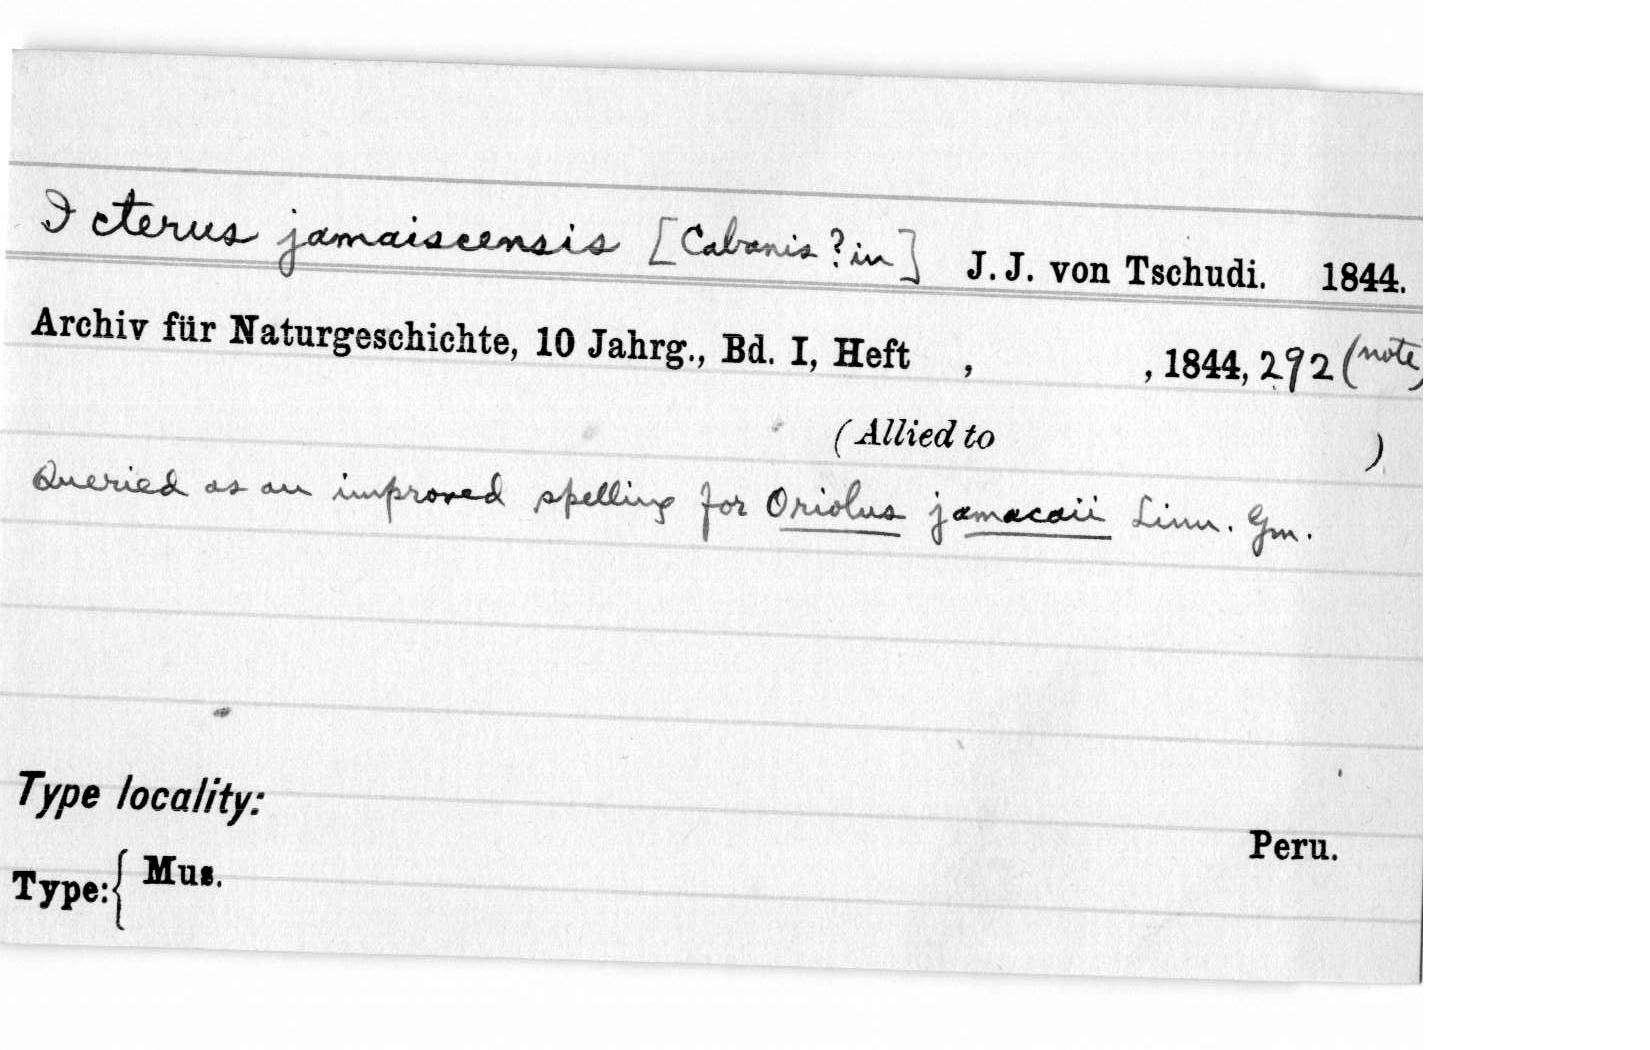 Icterus jamaiscensis [Cabanis ? in] J. J. von Tschudi. 1844.
Archiv für Naturgeschichte, 10 Jahrg., Bd. I, Heft , , 1844, 292 (note)
(Allied to )
Queried as an improved spelling for Oriolus jamacaii Linn. Gm.
Type locality:
Peru.
Type: { Mus.